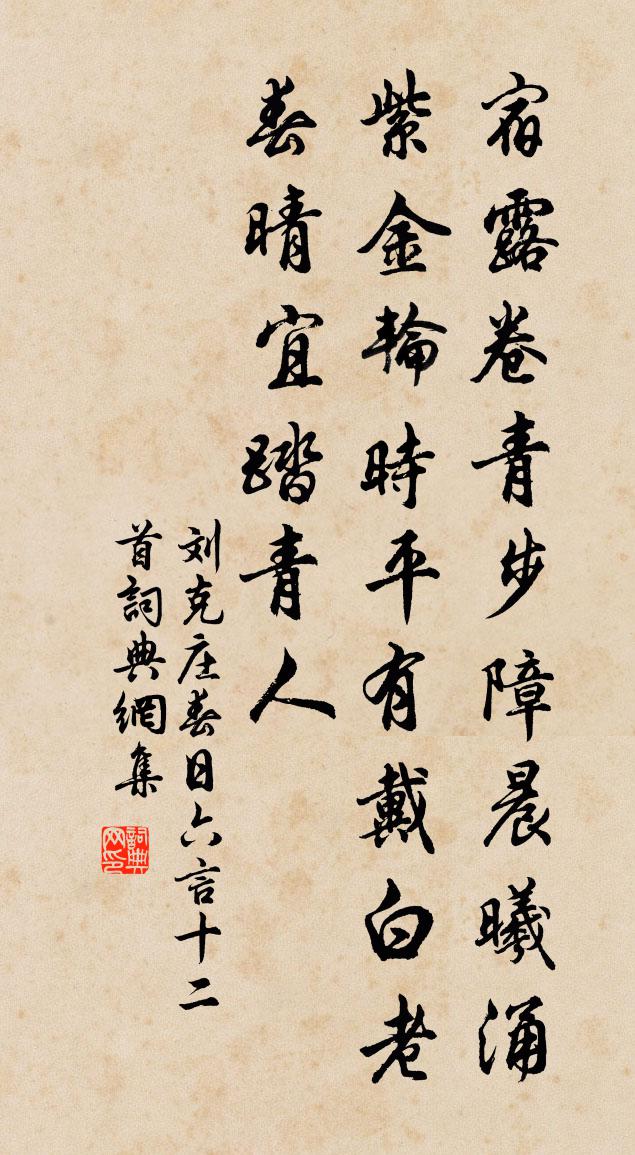 宿露卷青步障晨曦涌
紫金輪時平有戴白老
春晴宜踏青人
刘克庄春日六言十二
首詞典網集
詞典网印